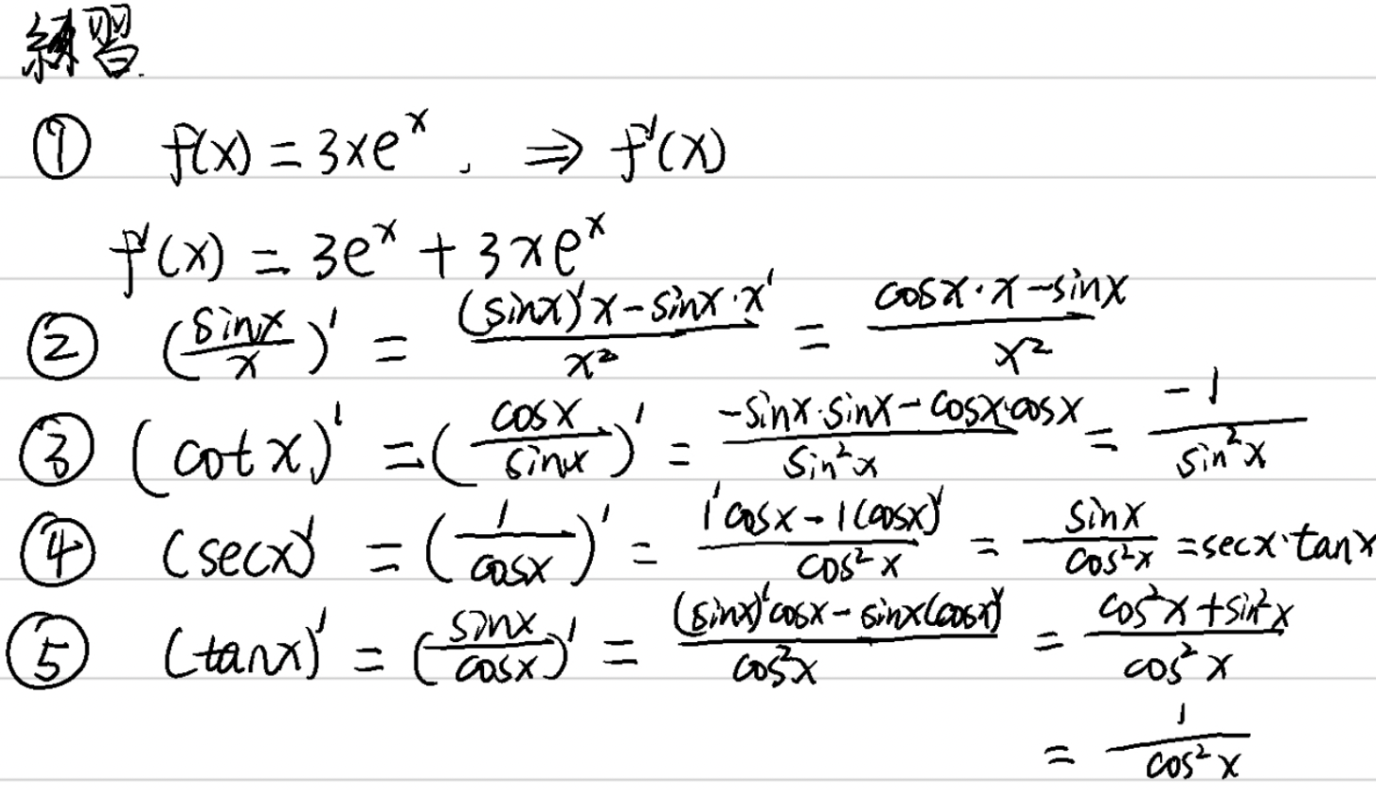 練習.
① f(x) = 3xeˣ, ⇒ f'(x)
f'(x) = 3eˣ + 3xeˣ
② (sinx/x)' = ((sinx)'x - sinx·x')/x² = (cosx·x - sinx)/x²
③ (cotx)' = (cosx/sinx)' = (-sinx·sinx - cosx·cosx)/sin²x = -1/sin²x
④ (secx)' = (1/cosx)' = (1'cosx - 1(cosx)')/cos²x = sinx/cos²x = secx·tanx
⑤ (tanx)' = (sinx/cosx)' = ((sinx)'cosx - sinx(cosx)')/cos²x = (cos²x + sin²x)/cos²x
= 1/cos²x